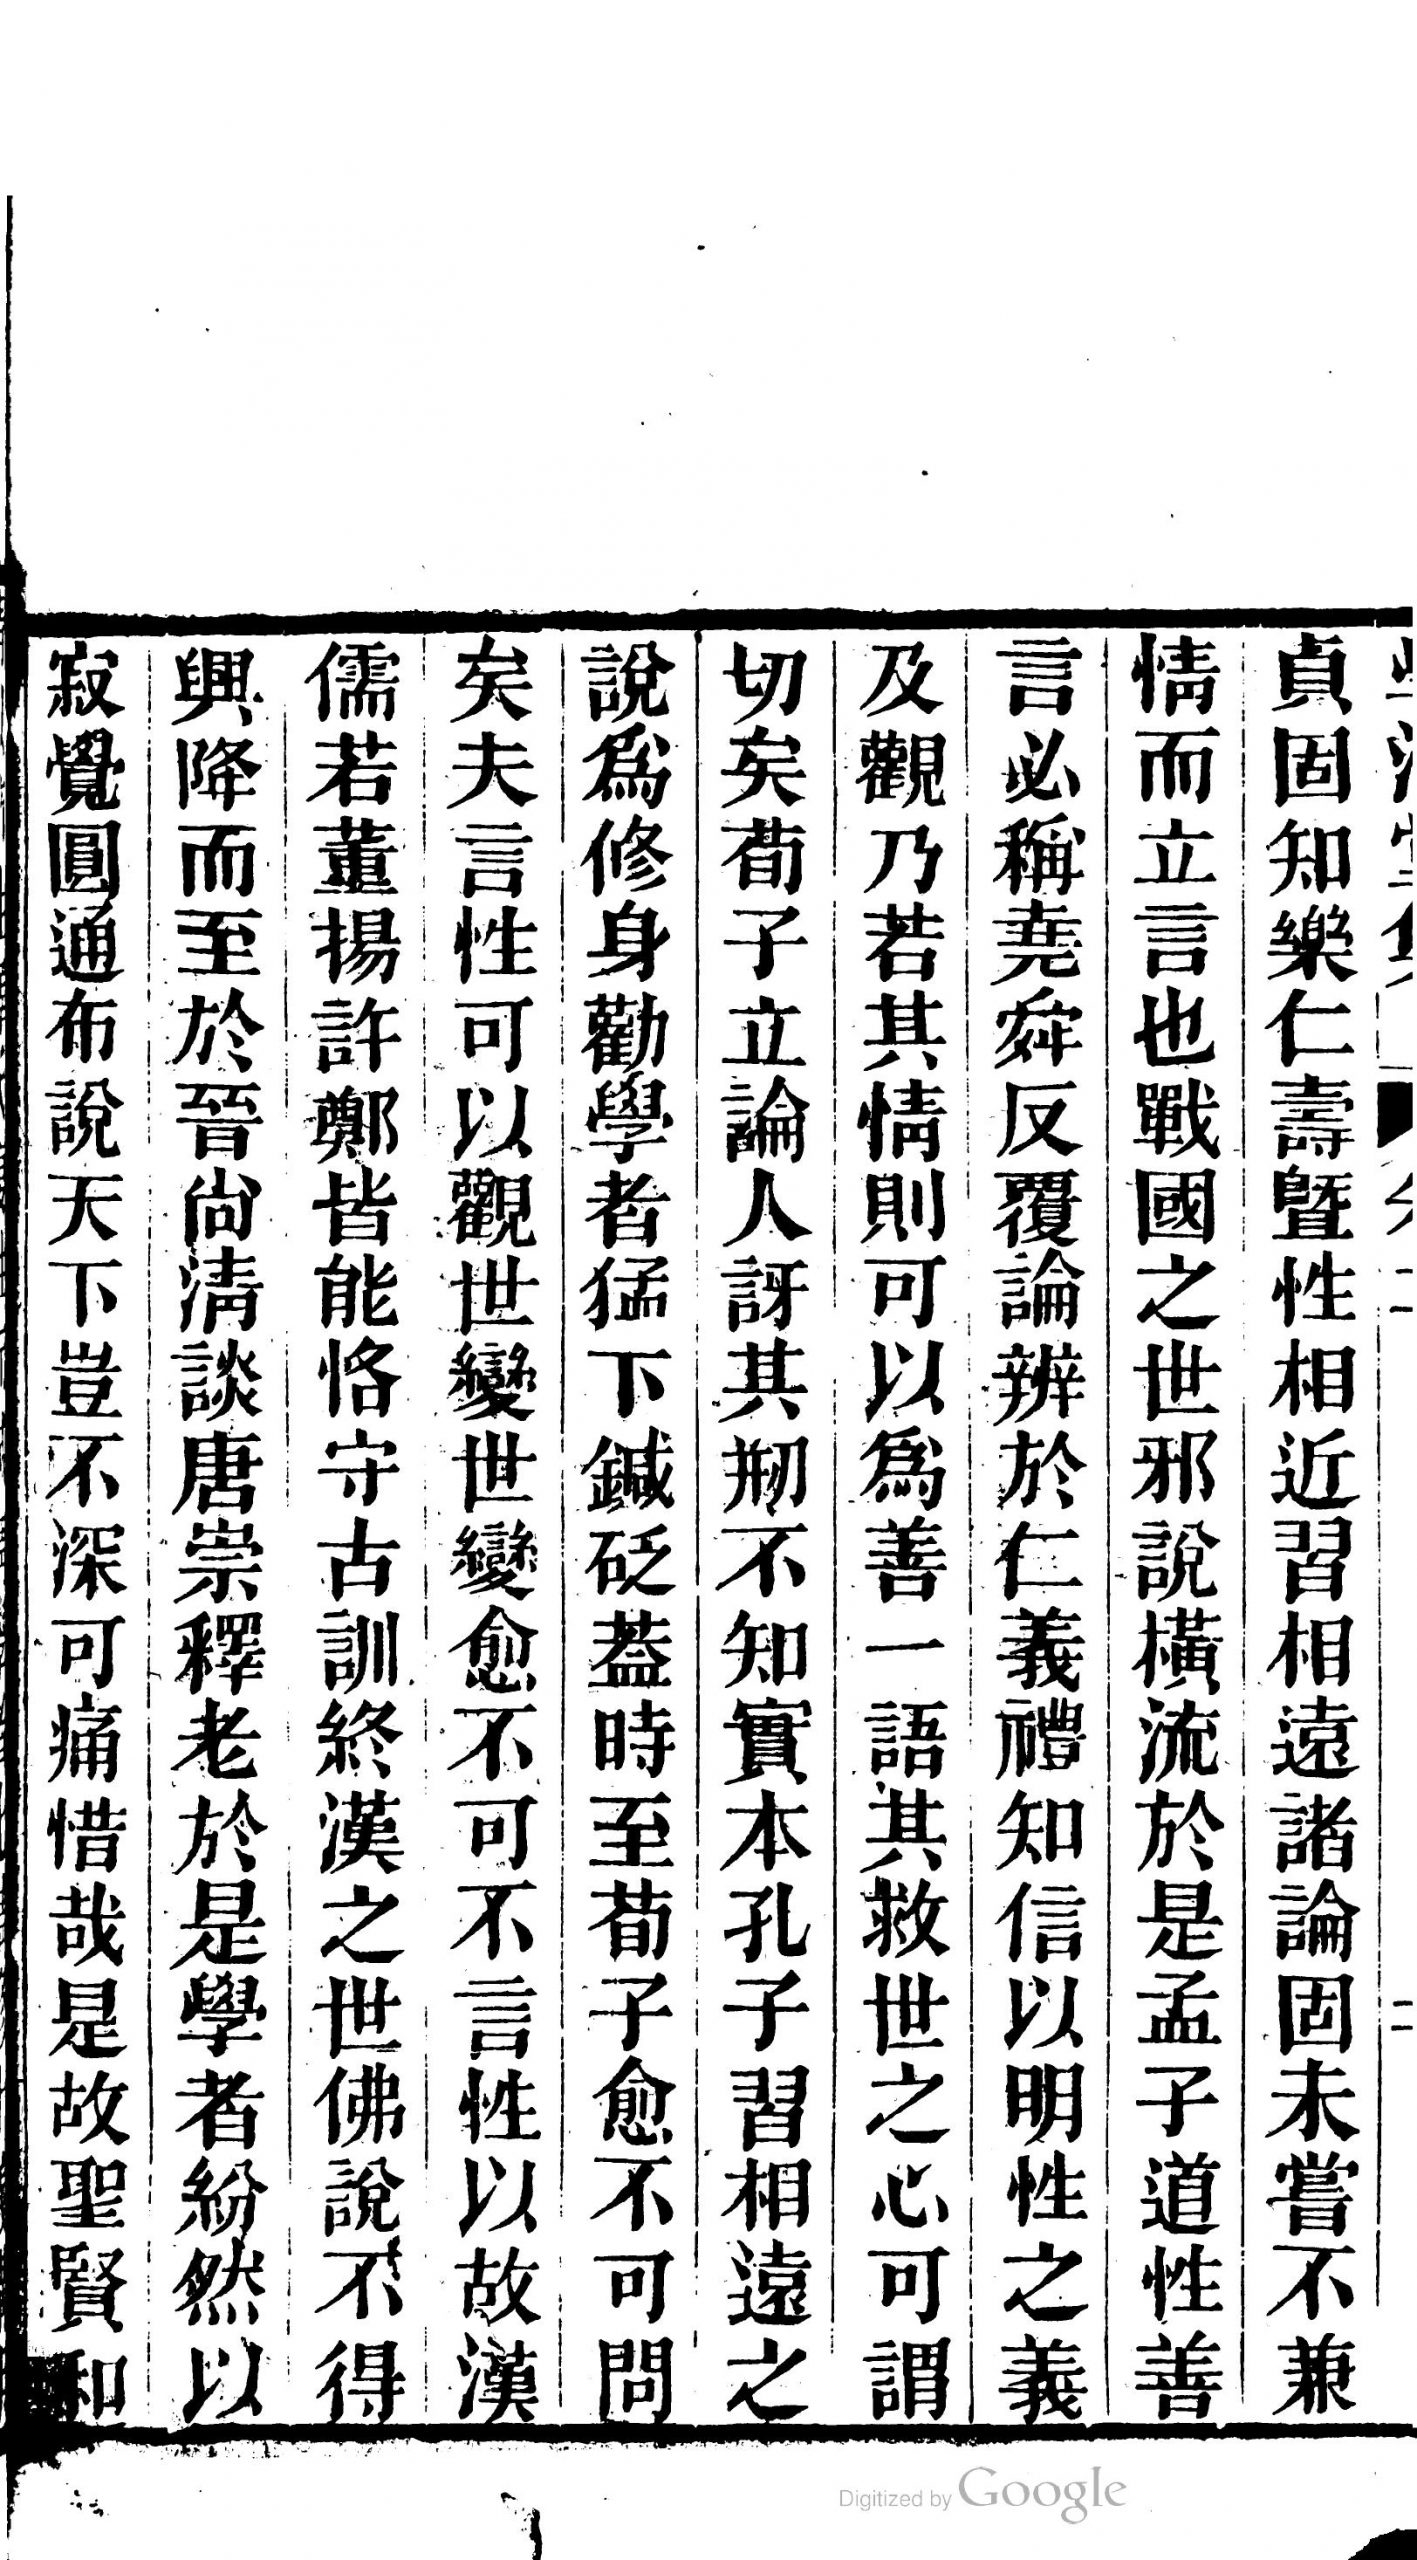 貞固知樂仁壽曁性相近習相遠諸論固未嘗不兼
情而立言也戰國之世邪說橫流於是孟子道性善
言必稱堯舜反覆論辨於仁義禮知信以明性之義
及觀乃若其情則可以爲善一語其救世之心可謂
切矣荀子立論人訝其剏不知實本孔子習相遠之
說爲修身勸學者猛下鍼砭葢時至荀子愈不可問
矣夫言性可以觀世變世變愈不可不言性以故漢
儒若董揚許鄭皆能恪守古訓終漢之世佛說不得
興降而至於晉尙淸談唐崇釋老於是學者紛然以
寂覺圓通布說天下豈不深可痛惜哉是故聖賢和
Digitized by Google